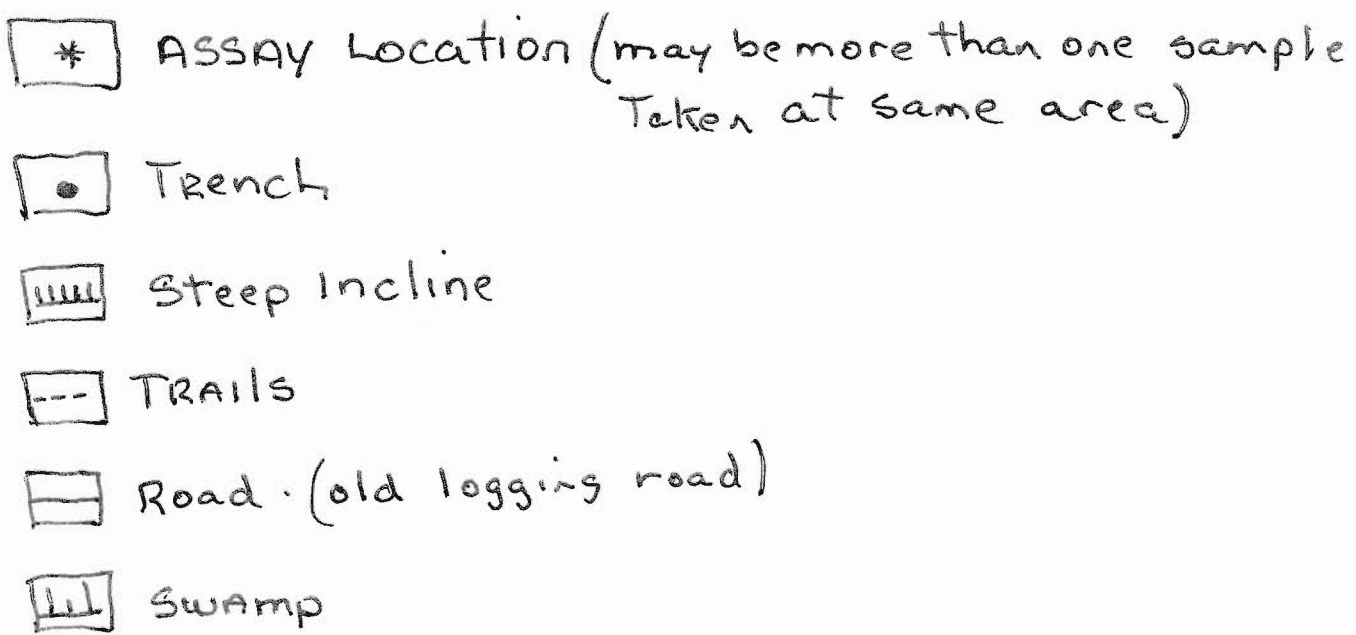 * ASSAY Location (may be more than one sample
Taken at same area)
Trench
Steep Incline
TRAIls
Road. (old logging road)
SwAmp